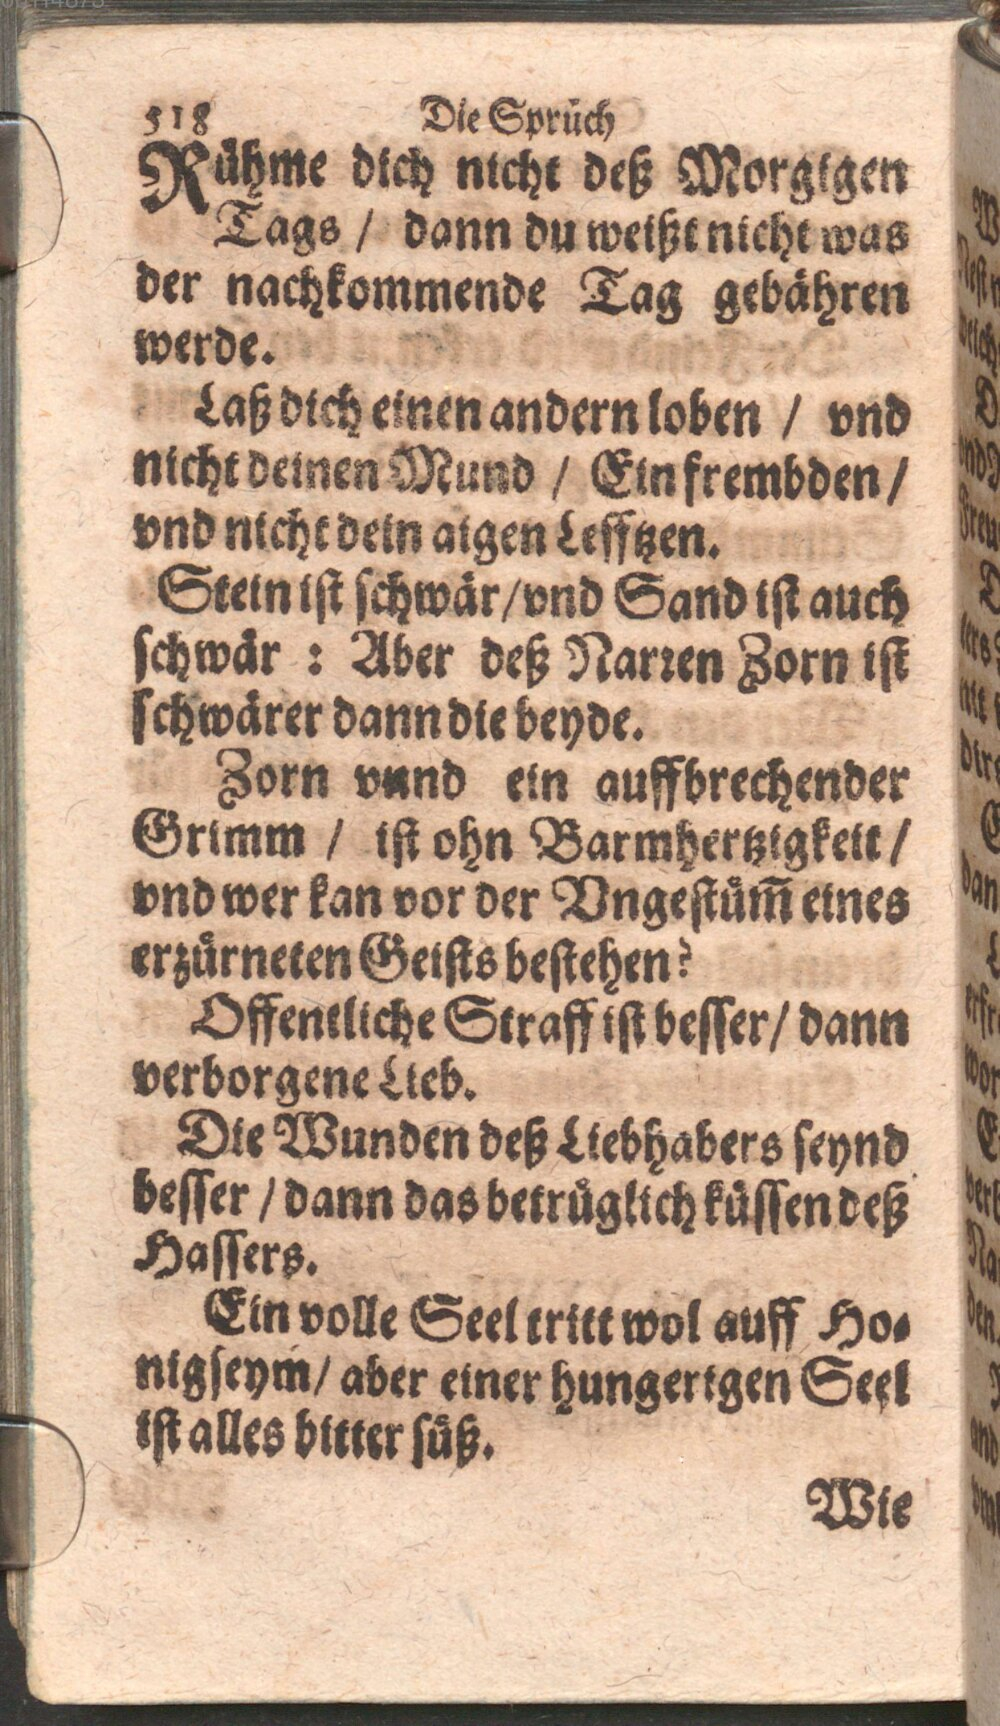 518 Die Sprüch
Rühme dich nicht deß Morgigen
Tags / dann du weißt nicht was
der nachkommende Tag gebähren
werde.
Laß dich einen andern loben / vnd
nicht deinen Mund / Ein frembden /
vnd nicht dein aigen Lefftzen.
Stein ist schwär / vnd Sand ist auch
schwär : Aber deß Narren Zorn ist
schwärer dann die beyde.
Zorn vnnd ein auffbrechender
Grimm / ist ohn Barmhertzigkeit /
vnd wer kan vor der Vngestüm̃ eines
erzürneten Geists bestehen?
Offentliche Straff ist besser / dann
verborgene Lieb.
Die Wunden deß Liebhabers seynd
besser / dann das betrüglich küssen deß
Hassers.
Ein volle Seel tritt wol auff Ho-
nigseym / aber einer hungerigen Seel
ist alles bitter süß.
Wie